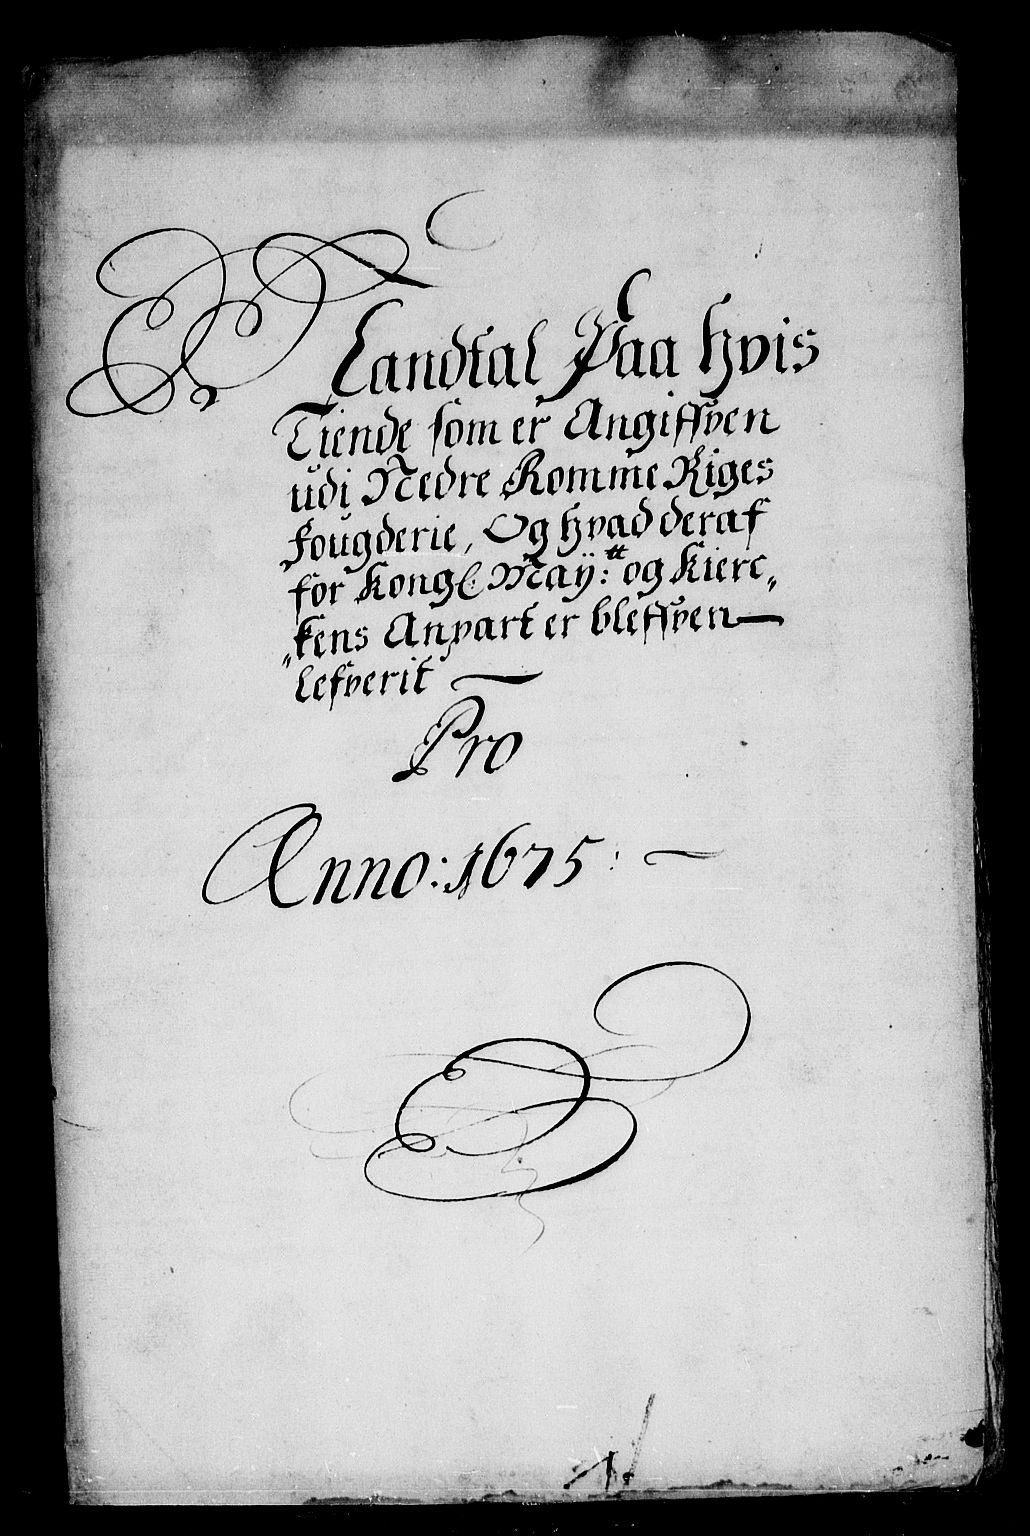 Landtal Paa hvis
Tiende som er Angiffven
udi Nedre Romme Riges
fougderie, Og hvad deraf
for Kongl: Maÿ:tt og Kierc„
„kens Anpart er bleffven—
lefverit —
Pro
Anno: 1675: —